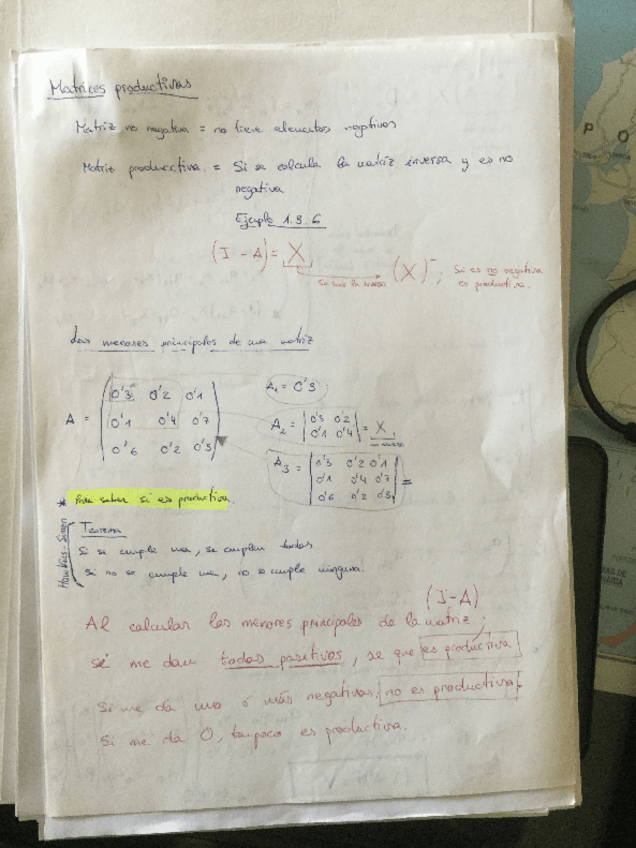 Matrices productivas
Matriz no negativa = no tiene elementos negativos
Matriz productiva = Si se calcula la matriz inversa y es no
negativa
Ejemplo 1.3.6
(I - A) = X
se hace la inversa
(X)⁻; Si es no negativa
es productiva.
Las menores principales de una matriz
A = | 0'3 0'2 0'1 |
| 0'1 0'4 0'7 |
| 0'6 0'2 0'3 |
A₁ = 0'3
A₂ = | 0'3 0'2 |
| 0'1 0'4 | = X
A₃ = | 0'3 0'2 0'1 |
| 0'1 0'4 0'7 |
| 0'6 0'2 0'3 | =
* Para saber si es productiva.
Hawkins-Simon
Teorema
Si se cumple una, se cumplen todas
Si no se cumple una, no se cumple ninguna.
(I-A)
Al calcular las menores principales de la matriz;
si me dan todas positivas, se que es productiva
Si me da una o más negativas, no es productiva.
Si me da 0, tampoco es productiva.
P O